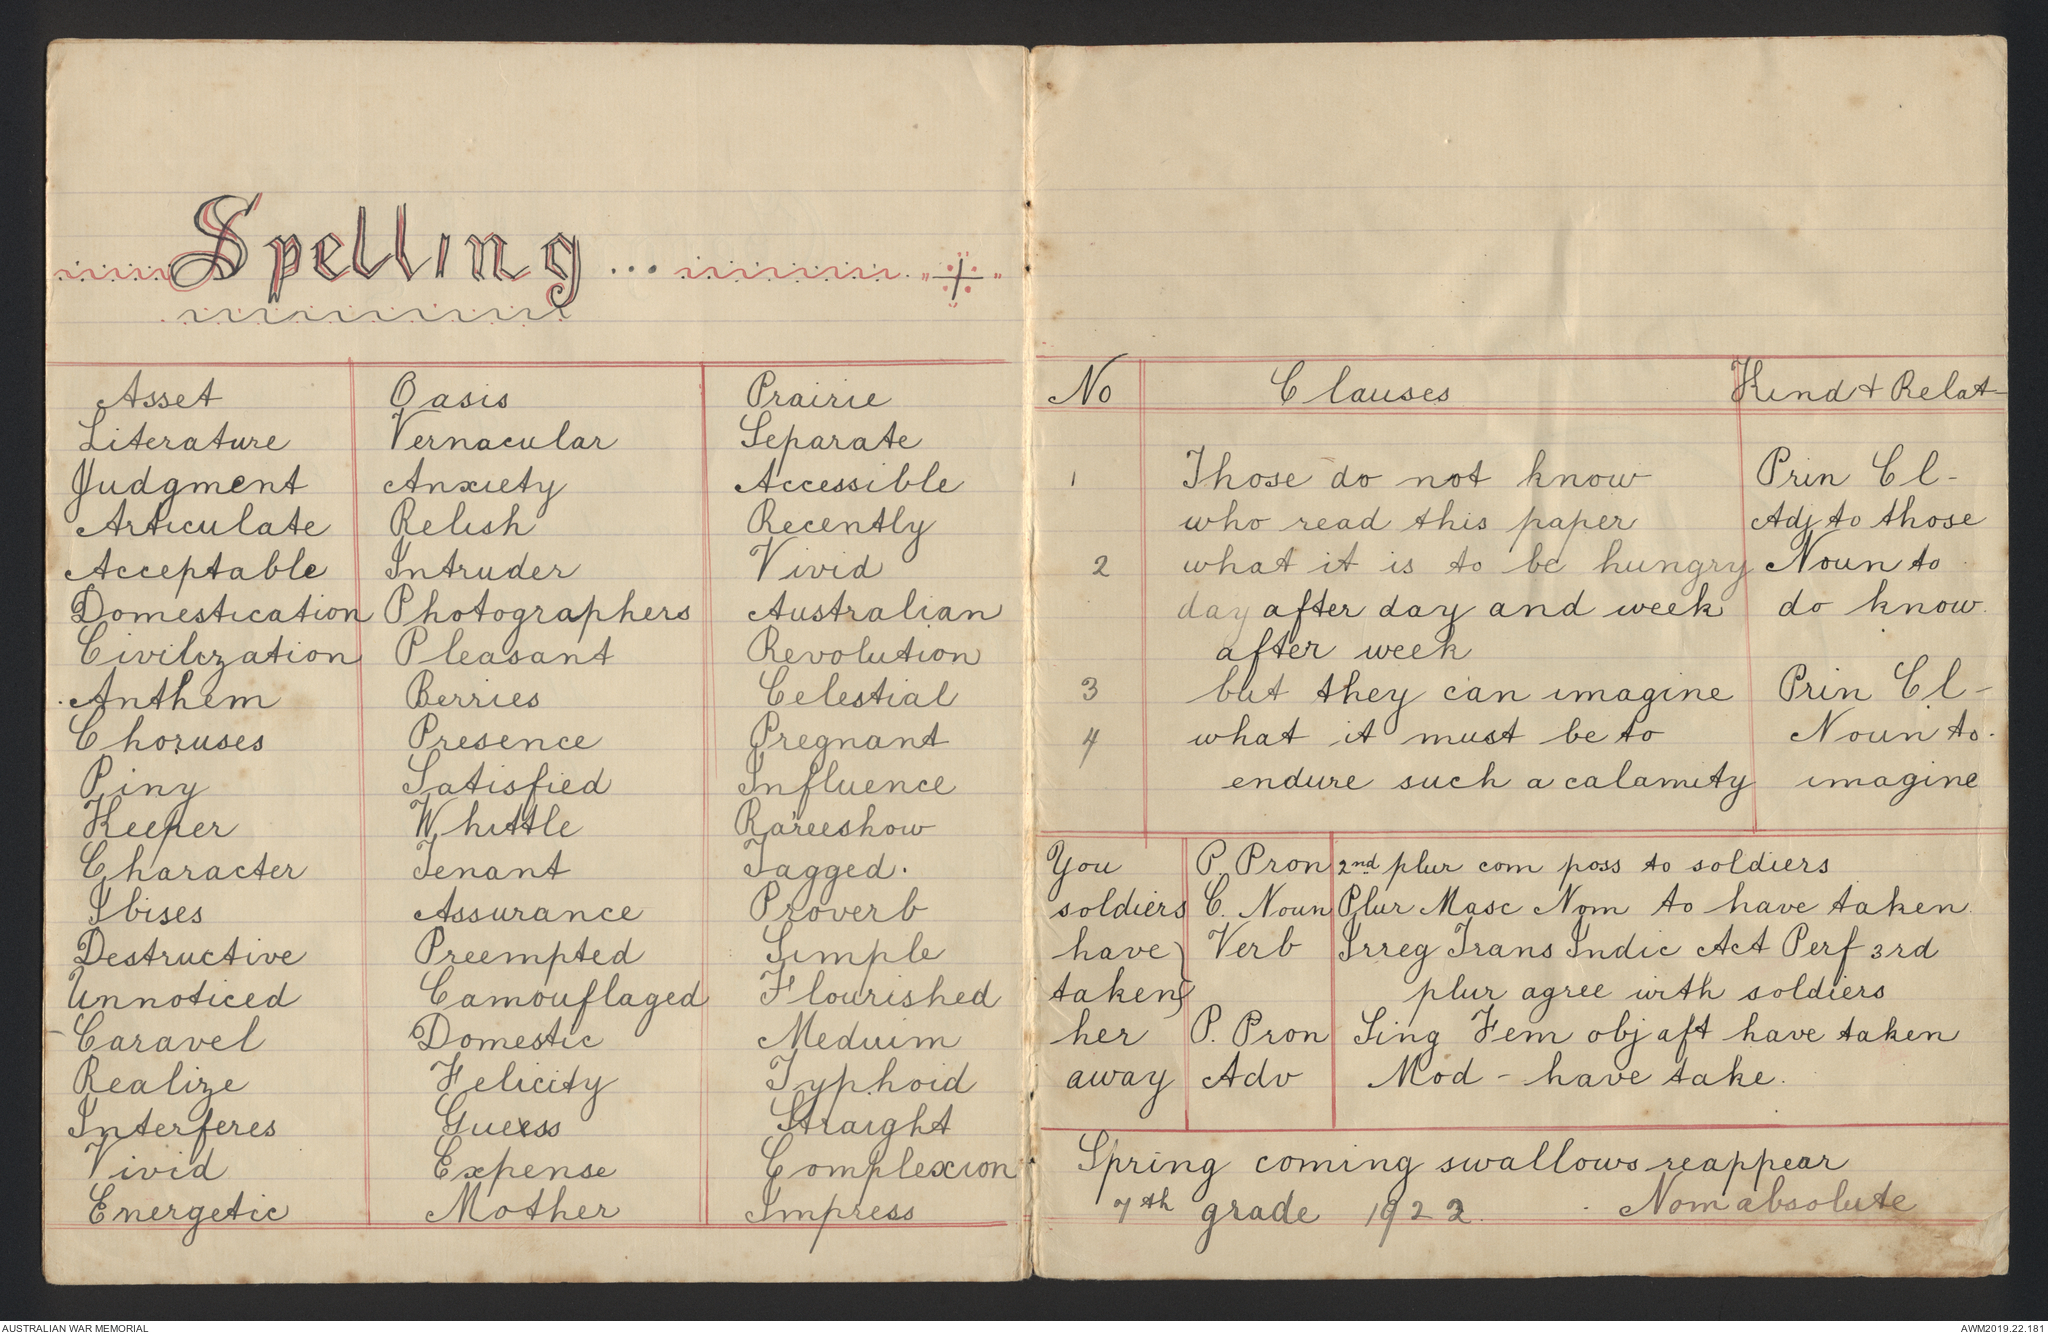 Spelling ...
Asset Oasis Prairie
Literature Vernacular Separate
Judgment Anxiety Accessible
Articulate Relish Recently
Acceptable Intruder Vivid
Domestication Photographers Australian
Civilization Pleasant Revolution
Anthem Berries Celestial
Choruses Presence Pregnant
Piny Satisfied Influence
Keeper Whittle Rareeshow
Character Tenant Tagged.
Ibises Assurance Proverb
Destructive Preempted Simple
Unnoticed Camouflaged Flourished
Caravel Domestic Meduim
Realize Felicity Typhoid
Interferes Guess Straight
Vivid Expense Complexion
Energetic Mother Impress
No Clauses Kind + Relat-
1 Those do not know Prin Cl-
who read this paper Adj to those
2 what it is to be hungry Noun to
day after day and week do know.
after week
3 but they can imagine Prin Cl-
4 what it must be to Noun to.
endure such a calamity imagine
You P. Pron 2nd plur com poss to soldiers
soldiers C. Noun Plur Masc Nom to have taken
have) Verb Irreg Trans Indic Act Perf 3rd
taken) plur agree with soldiers
her P. Pron Sing Fem obj aft have taken
away Adv Mod - have take.
Spring coming swallows reappear
7th grade 1922. Nom absolute
AUSTRALIAN WAR MEMORIAL AWM2019.22.181